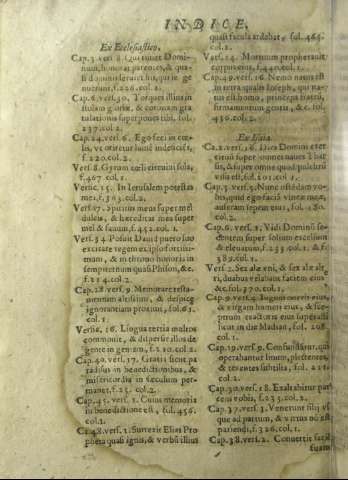 INDICE,
Ex Ecclesiastico.
Cap.3. vers.8. Qui timet Domi-
num, honorat parentes, & qua-
si dominis serviet his, qui se ge-
nuerunt, f.226. col.1.
Cap.6. vers.30. Torques illius in
stolam gloriæ, & coronam gra-
tulationis superpones tibi, fol.
237. col.2.
Cap.24. vers.6. Ego feci in cœ-
lis, ut oriretur lumē indeficiēs,
f.220. col.2.
Vers.8. Gyrum cœli circuivi sola,
f.467. col.1.
Versic.15. In Ierusalem potestas
mea, f.303. col.2.
Vers.27. Spiritus meus super mel
dulcis, & hæreditas mea super
mel & favum, f.452. col.1.
Vers.34. Posuit David puero suo
excitare regem ex ipso fortissi-
mum, & in throno honoris in
sempiternum
f.214. col.2.
Cap.28. vers.9. Memorare testa-
mentum altissimi, & despice
ignorantiam proximi, fol.61.
col.1.
Versic.16. Lingua tertia multos
commovit, & dispersit illos de
gente in gentem, f.210. col.2.
Cap.40. vers.17. Gratia sicut pa
radisus in benedictionibus, &
misericordia in sæculum per-
manet, f.25. col.2.
Cap.45. vers.1. Cuius memoria
in benedictione est, fol.456.
col.2.
Ca.48. vers.1. Surrexit Elias Pro
pheta quasi ignis, & verbū illius
quasi facula ardebat, fol.465.
col.2.
Vers.14. Mortuum prophetavit
corpus eius, f.440. col.1.
Cap.49. vers.16. Nemo natus est
in terra qualis Ioseph, qui na-
tus est homo, princeps fratrū,
firmamentum gentis, &c. fol.
436. col.2.
Ex Isaia.
Ca.2. vers.16. Dies Domini exer
cituū super omnes naues Thar
sis, & super omne quod pulchrū
visu est, fol.201. col.1.
Cap.5. vers.5. Nunc ostēdam vo-
bis, quid ego faciā vineæ meæ,
auferam sepem eius, fol.180.
col.2.
Cap.6. vers.1. Vidi Dominū se-
dentem super solium excelsum
& elevatum, f.233. col.1. & f.
389. col.1.
Vers.2. Sex alæ vni, & sex alæ alte
ri, duabus velabant faciem eius
&c. fol.370. col.1.
Cap.9. vers.4. Iugum oneris eius,
& virgam humeri eius, & sce-
ptrum exactoris eius superasti
sicut in die Madian, fol.208.
col.1.
Cap.19. vers.9. Confundētur, qui
operabantur linum, plectentes,
& texentes subtilia, fol.221.
col.2.
Cap.30. vers.18. Exaltabitur par
cens vobis, f.235. col.2.
Cap.37. vers.3. Venerunt filij vs
que ad partum, & virtus nō est
pariendi, f.326. col.1.
Cap.38. vers.2. Convertit faciē
suam